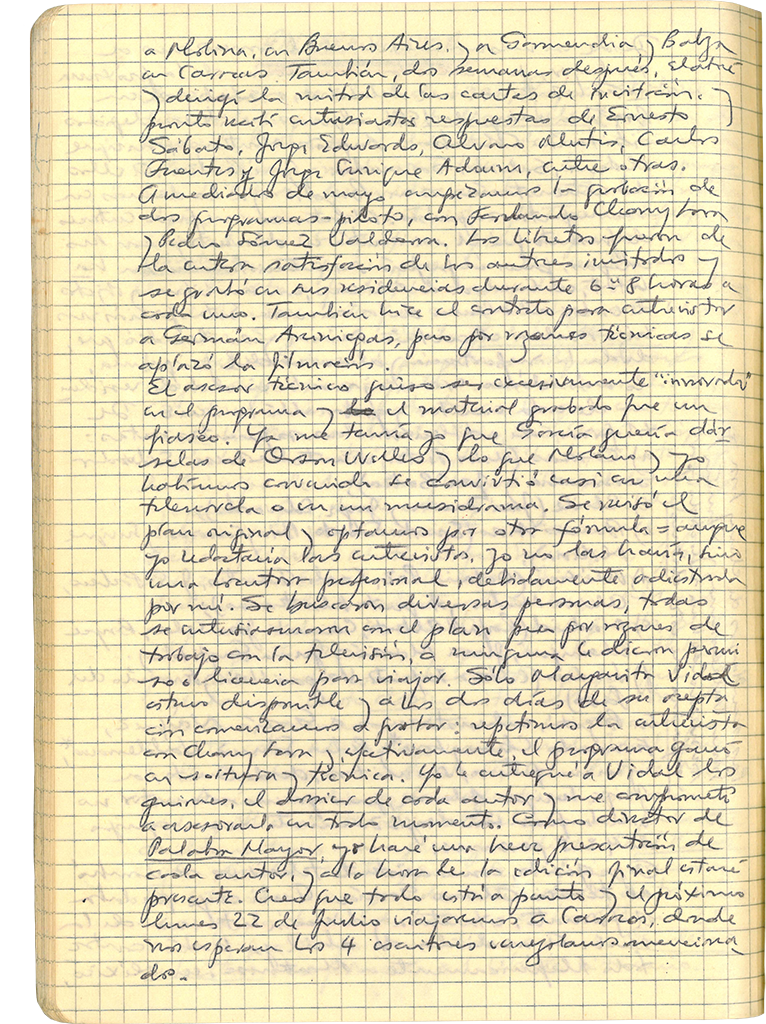 a Molina, en Buenos Aires, y a Garmendia y Balza
en Caracas. También, dos semanas después, elaboré
y dirigí la mitad de las cartas de invitación. Y
pronto recibí entusiastas respuestas de Ernesto
Sábato, Jorge Edwards, Alvaro Mutis, Carlos
Fuentes y Jorge Enrique Adoum, entre otras.
A mediados de mayo empezamos la grabación de
dos programas-piloto, con Fernando Charry Lara
y Pedro Gómez Valderrama. Los libretos fueron de
la entera satisfacción de los autores invitados y
se grabó en sus residencias durante 6 u 8 horas a
cada uno. También hice el contrato para entrevistar
a Germán Arciniegas, pero por razones técnicas se
aplazó la filmación.
El asesor técnico quiso ser excesivamente "innovador"
en el programa y el material grabado fue un
fiasco. Ya me temía yo que García quería dár-
selas de Orson Welles y lo que Molano y yo
habíamos convenido se convirtió casi en una
telenovela o en un musidrama. Se revisó el
plan original y optamos por otra fórmula = aunque
yo redactaría las entrevistas, yo no las haría, sino
una locutora profesional, debidamente adiestrada
por mí. Se buscaron diversas personas, todas
se entusiasmaron con el plan pero por razones de
trabajo con la televisión, a ninguna le dieron permi
so o licencia para viajar. Sólo Margarita Vidal
estuvo disponible y a los dos días de su acepta
ción comenzamos a grabar: repetimos la entrevista
con Charry Lara y, efectivamente, el programa ganó
en soltura y técnica. Yo le entregué a Vidal los
guiones, el dossier de cada autor y me comprometí
a asesorarla en todo momento. Como director de
Palabra Mayor, yo haré una breve presentación de
cada autor, y a la hora de la edición final estaré
presente. Creo que todo está a punto y el próximo
lunes 22 de Julio viajaremos a Caracas, donde
nos esperan los 4 escritores venezolanos menciona-
dos.-